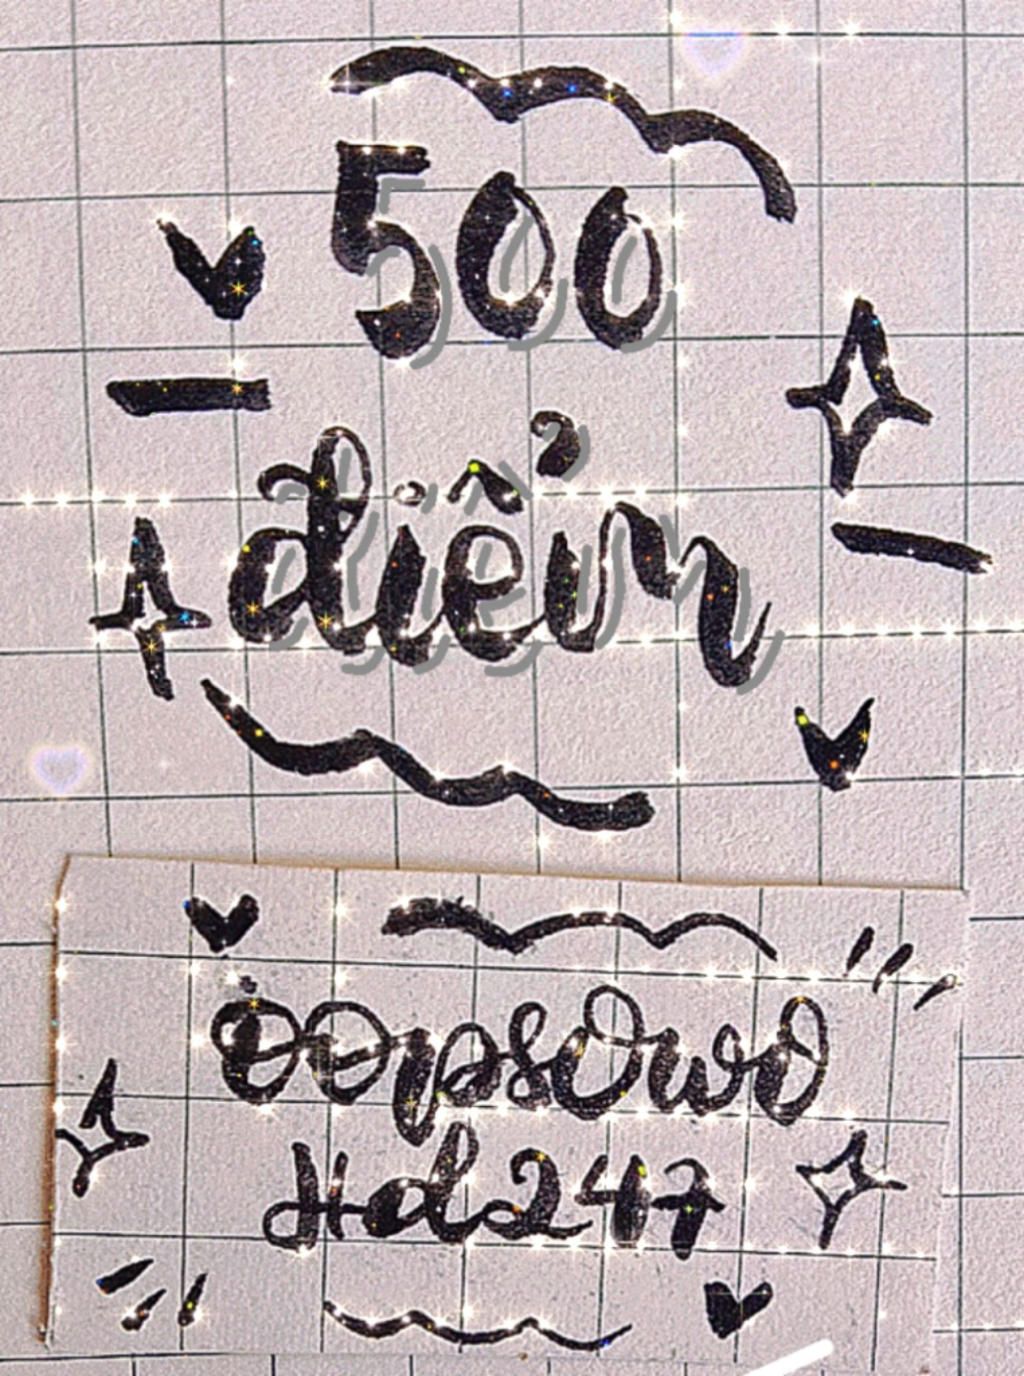 500
điểm
oopsowo
Hd247